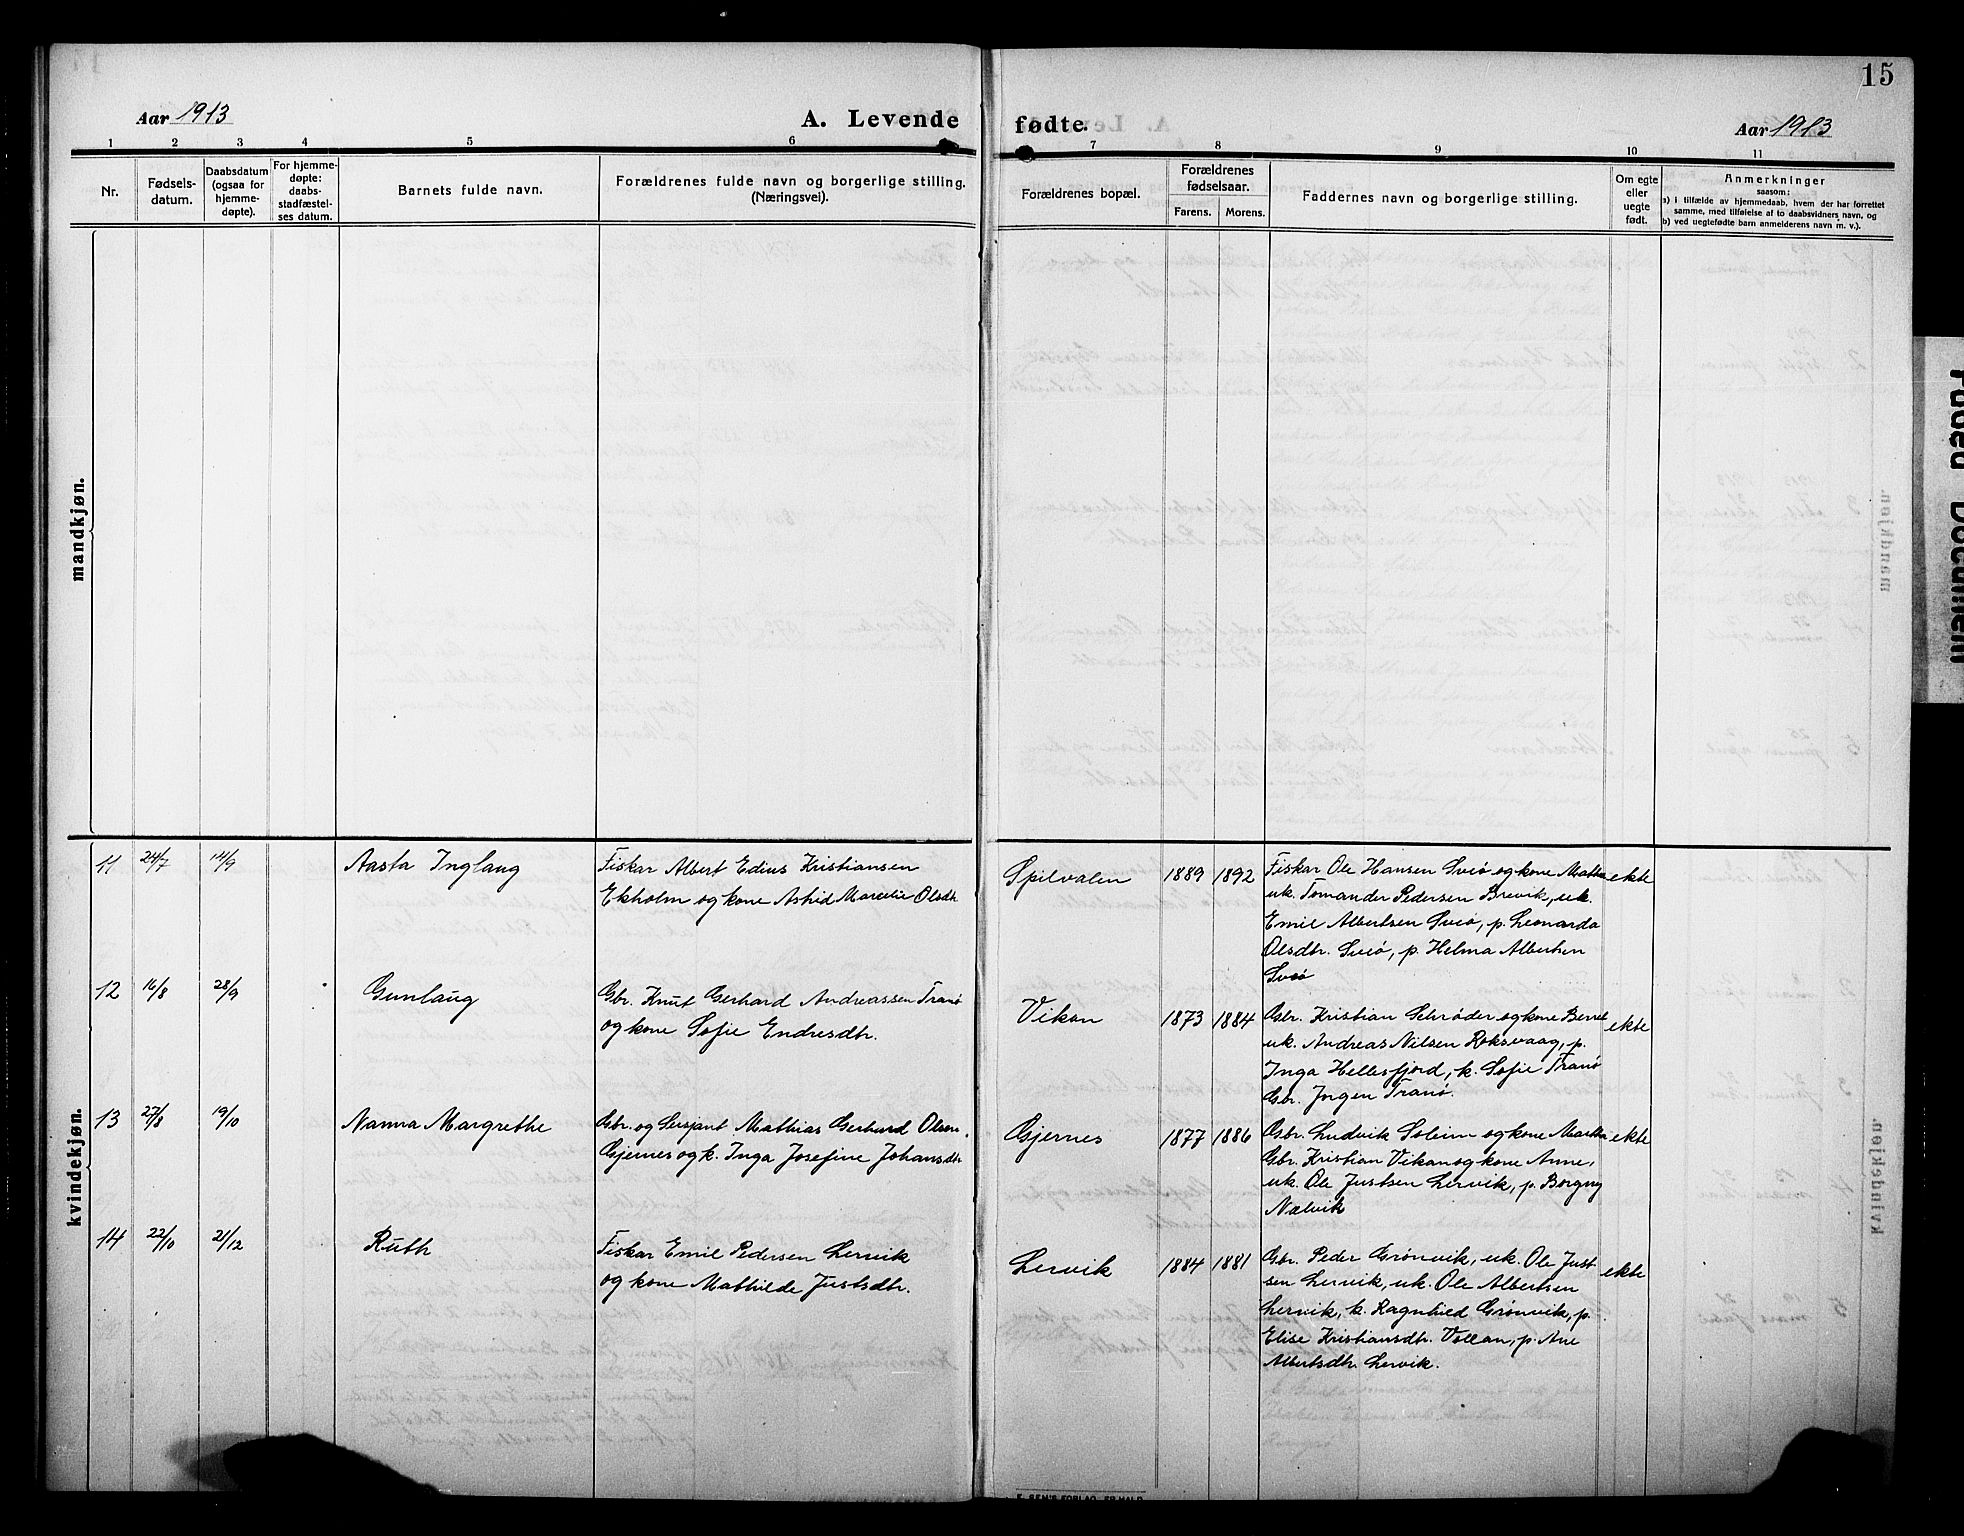 15
Aar 1913
A. Levende
fødte.
Aar 1913
1 2 3 4 5 6 7 8 9 10 11
Nr.
Fødsels-
datum.
Daabsdatum
(ogsaa for
hjemme-
døpte).
For hjemme-
døpte:
daabs-
stadfæstel-
ses datum.
Barnets fulde navn.
Forældrenes fulde navn og borgerlige stilling.
(Næringsvei).
Forældrenes bopæl.
Forældrenes
fødselsaar.
Farens. Morens.
Faddernes navn og borgerlige stilling.
Om egte
eller
uegte
født.
Anmerkninger
saasom:
a) i tilfælde av hjemmedaab, hvem der har forrettet
samme, med tilføielse af to daabsvidners navn, og
b) ved uegtefødte barn anmelderens navn m. v.).
mandkjøn.
kvindekjøn.
11 24/7 14/9 Aasta Inglaug
Fiskar Albert Edius Kristiansen
Ekholm og kone Astrid Marcelie Olsdtr
Spilvalen 1889 1892
Fiskar Ole Hansen Sveiø og kone Mattea ekte
uk. Tomander Pedersen Brevik, uk.
Emil Albertsen Sveiø, p. Leonarda
Olsdtr. Sveiø, p. Helma Albertsen
Sveiø
12 16/8 28/9 Gunlaug
Gbr. Knut Gerhard Andreassen Tranø
og kone Sofie Endresdtr.
Vikan 1873 1884
Gbr. Kristian Schrøder og kone Berrel ekte
uk. Andreas Nilsen Roksvaag, p.
Inga Hellesfjord, k. Sofie Tranø
Gbr. Jørgen Tranø.
13 27/8 19/10 Nanna Margrethe
Gbr. og Sersjant Mathias Gerhard Olsen
Gjernes og k. Inga Josefine Johansdtr
Gjernes 1877 1886
Gbr. Ludvik Soleim og kone Martha ekte
Gbr. Kristian Vikan og kone Anne,
uk. Ole Justsen Lervik, p. Borgny
Nelvik
14 22/10 21/12 Ruth
Fiskar Emil Pedersen Lervik
og kone Mathilde Justsdtr.
Lervik 1884 1881
Gbr. Peder Grønvik, uk. Ole Just- ekte
sen Lervik, uk. Ole Albertsen
Lervik, k. Ragnhild Grønvik, p.
Elise Kristiansdtr. Vollan, p. Ane
Albertsdtr. Lervik.